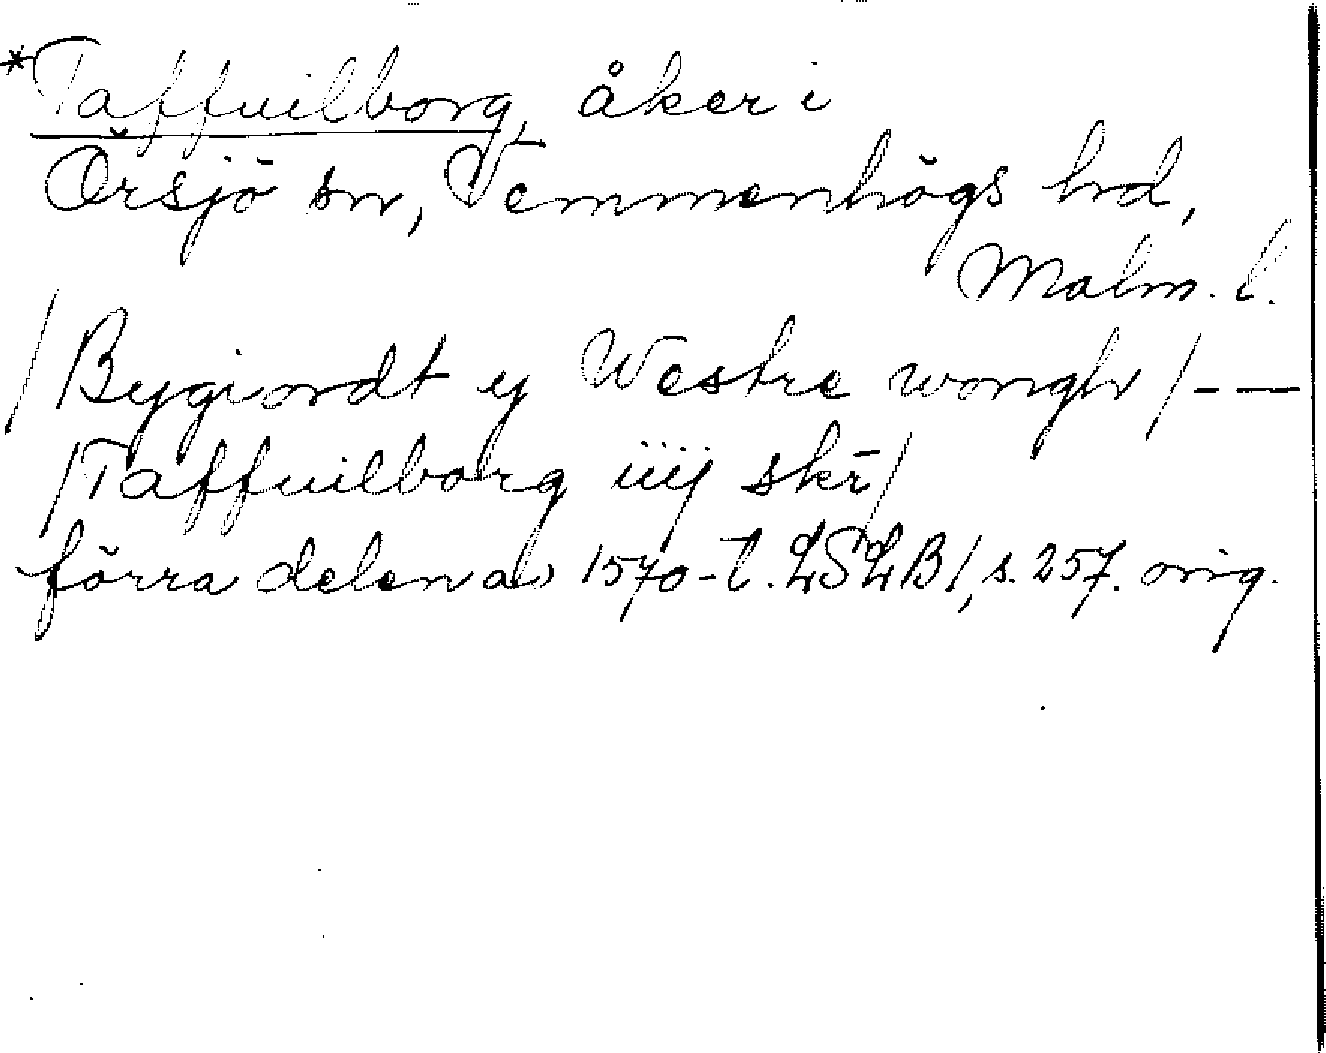 *Taffuilborg, åker i
Örsjö sn, Vemmenhögs hd,
Malm. l.
/Bygiordt y Westre wongh/ - —
/Taffuilborg iiij skr̄/
förra delen av 1570-t. LSLB 1, s. 257. orig.